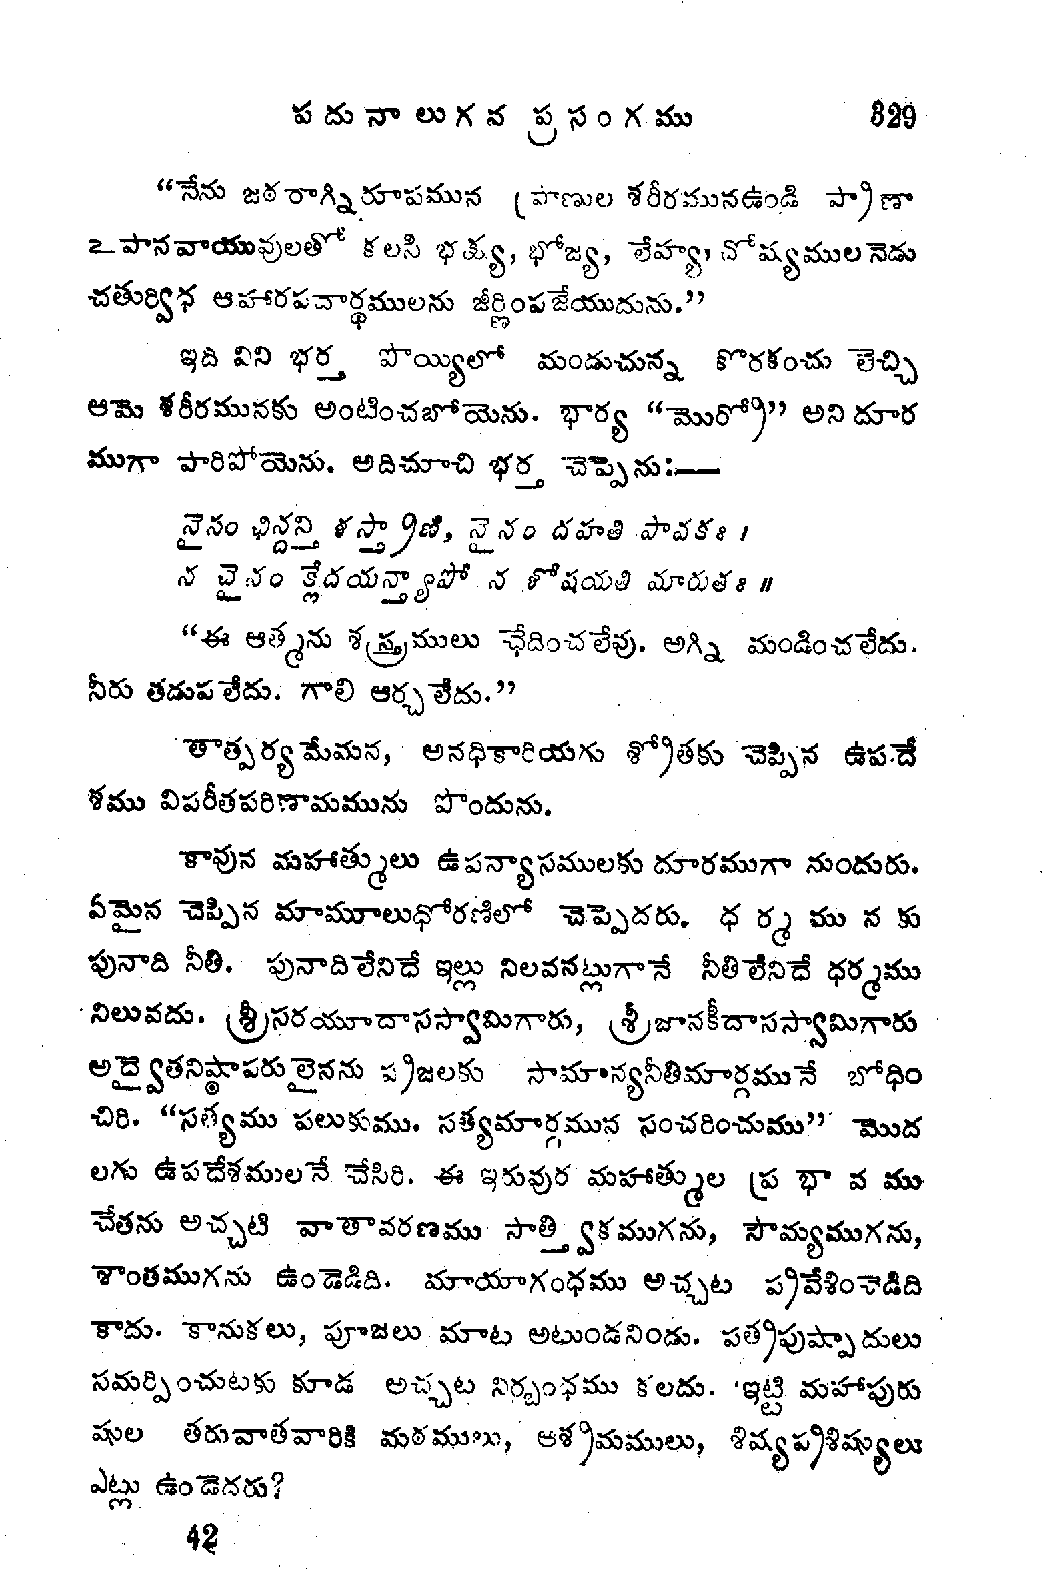 పదునాలుగవ ప్రసంగము 329
“నేను జఠరాగ్నిరూపమున ప్రాణుల శరీరమునఉండి ప్రాణా
పానవాయువులతో కలసి భక్ష్య, భోజ్య, లేహ్య, చోష్యములనెడు
చతుర్విధ ఆహారపదార్థములను జీర్ణింపజేయుదును.”
ఇది విని భర్త పొయ్యిలో మండుచున్న కొరకంచు తెచ్చి
ఆమె శరీరమునకు అంటించబోయెను. భార్య “మొర్రో” అని దూర
ముగా పారిపోయెను. అదిచూచి భర్త చెప్పెను:—
నైనం ఛిన్దన్తి శస్త్రాణి, నైనం దహతి పావకః ।
న చైనం క్లేదయన్త్యాపో న శోషయతి మారుతః ॥
“ఈ ఆత్మను శస్త్రములు ఛేదించలేవు. అగ్ని మండించలేదు.
నీరు తడుపలేదు. గాలి ఆర్చలేదు.”
తాత్పర్యమేమన, అనధికారియగు శ్రోతకు చెప్పిన ఉపదే
శము విపరీతపరిణామమును పొందును.
కావున మహాత్ములు ఉపన్యాసములకు దూరముగా నుందురు.
ఏమైన చెప్పిన మామూలుధోరణిలో చెప్పెదరు. ధర్మమునకు
పునాది నీతి. పునాదిలేనిదే ఇల్లు నిలవనట్లుగానే నీతిలేనిదే ధర్మము
నిలువదు. శ్రీసరయూదాసస్వామిగారు, శ్రీజానకీదాసస్వామిగారు
అద్వైతనిష్ఠాపరులైనను ప్రజలకు సామాన్యనీతిమార్గమునే బోధిం
చిరి. “సత్యము పలుకుము. సత్యమార్గమున సంచరించుము” మొద
లగు ఉపదేశములనే చేసిరి. ఈ ఇరువుర మహాత్ముల ప్రభావము
చేతను అచ్చటి వాతావరణము సాత్త్వికముగను, సౌమ్యముగను,
శాంతముగను ఉండెడిది. మాయాగంధము అచ్చట ప్రవేశించెడిది
కాదు. కానుకలు, పూజలు మాట అటుండనిండు. పత్రపుష్పాదులు
సమర్పించుటకు కూడ అచ్చట నిర్బంధము కలదు. ఇట్టి మహాపురు
షుల తరువాతవారికి మఠములు, ఆశ్రమములు, శిష్యప్రశిష్యులు
ఎట్లు ఉండెదరు?
42